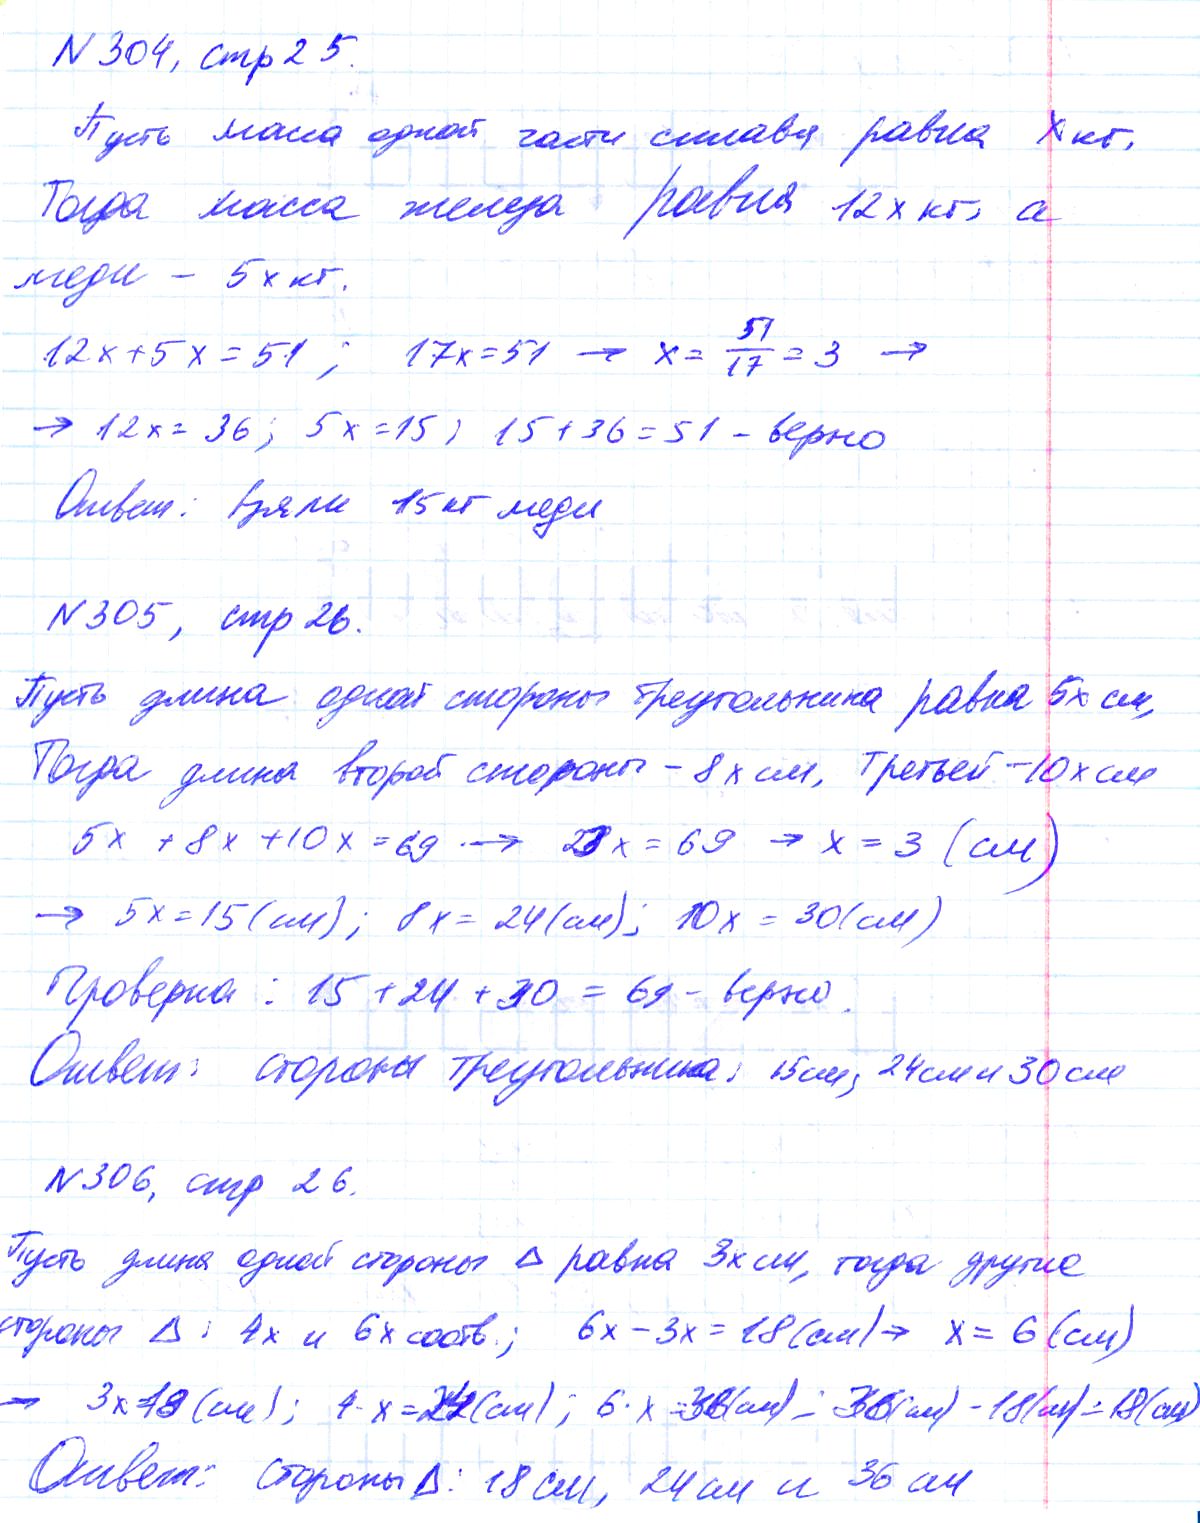 N 304, стр 25.
Пусть масса одной части сплава равна x кг.
Тогда масса железа равна 12x кг, а
меди – 5x кг.
12x+5x=51; 17x=51 → x= 51/17 =3 →
→ 12x=36; 5x=15; 15+36=51 – верно
Ответ: взяли 15 кг меди
N 305, стр 26.
Пусть длина одной стороны треугольника равна 5x см,
Тогда длина второй стороны – 8x см, третьей – 10x см
5x + 8x + 10x = 69 → 23x = 69 → x = 3 (см)
→ 5x = 15 (см); 8x = 24 (см); 10x = 30 (см)
Проверка: 15 + 24 + 30 = 69 – верно.
Ответ: стороны треугольника: 15 см, 24 см и 30 см
N 306, стр 26.
Пусть длина одной стороны Δ равна 3x см, тогда другие
стороны Δ: 4x и 6x соотв.; 6x – 3x = 18 (см) → x = 6 (см)
→ 3x=18 (см); 4·x=24 (см); 6·x=36 (см) ; 36 (см) – 18 (см) = 18 (см)
Ответ: стороны Δ: 18 см, 24 см и 36 см